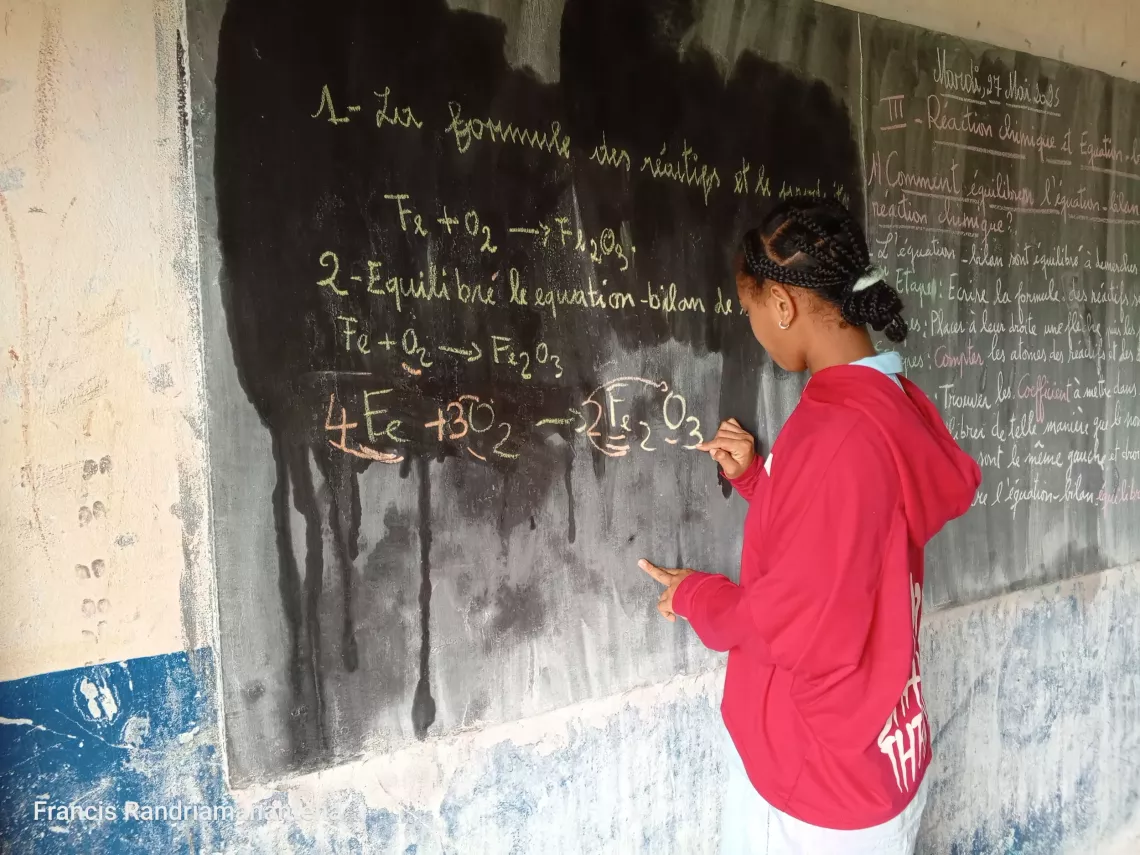 1- Les formule des réactifs et le
Fe + O2 → Fe2O3.
2- Equilibré le equation-bilan de
Fe + O2 → Fe2O3
4Fe + 3O2 → 2Fe2O3
Mardi, 27 Mai 2025
III - Réaction chimique et Equation-
A Comment équilibrer l'équation-bilan
réaction chimique?
L'équation-bilan sont équilibré à
Etape: Ecrire la formule des réactifs
: Placer à leur droite une flèche
: Compter les atomes des réactifs et des
. Trouver les Coefficient à metre dans
de telle manière que le
sont le même gauche et
l'équation-bilan
THT
Francis Randriamanan